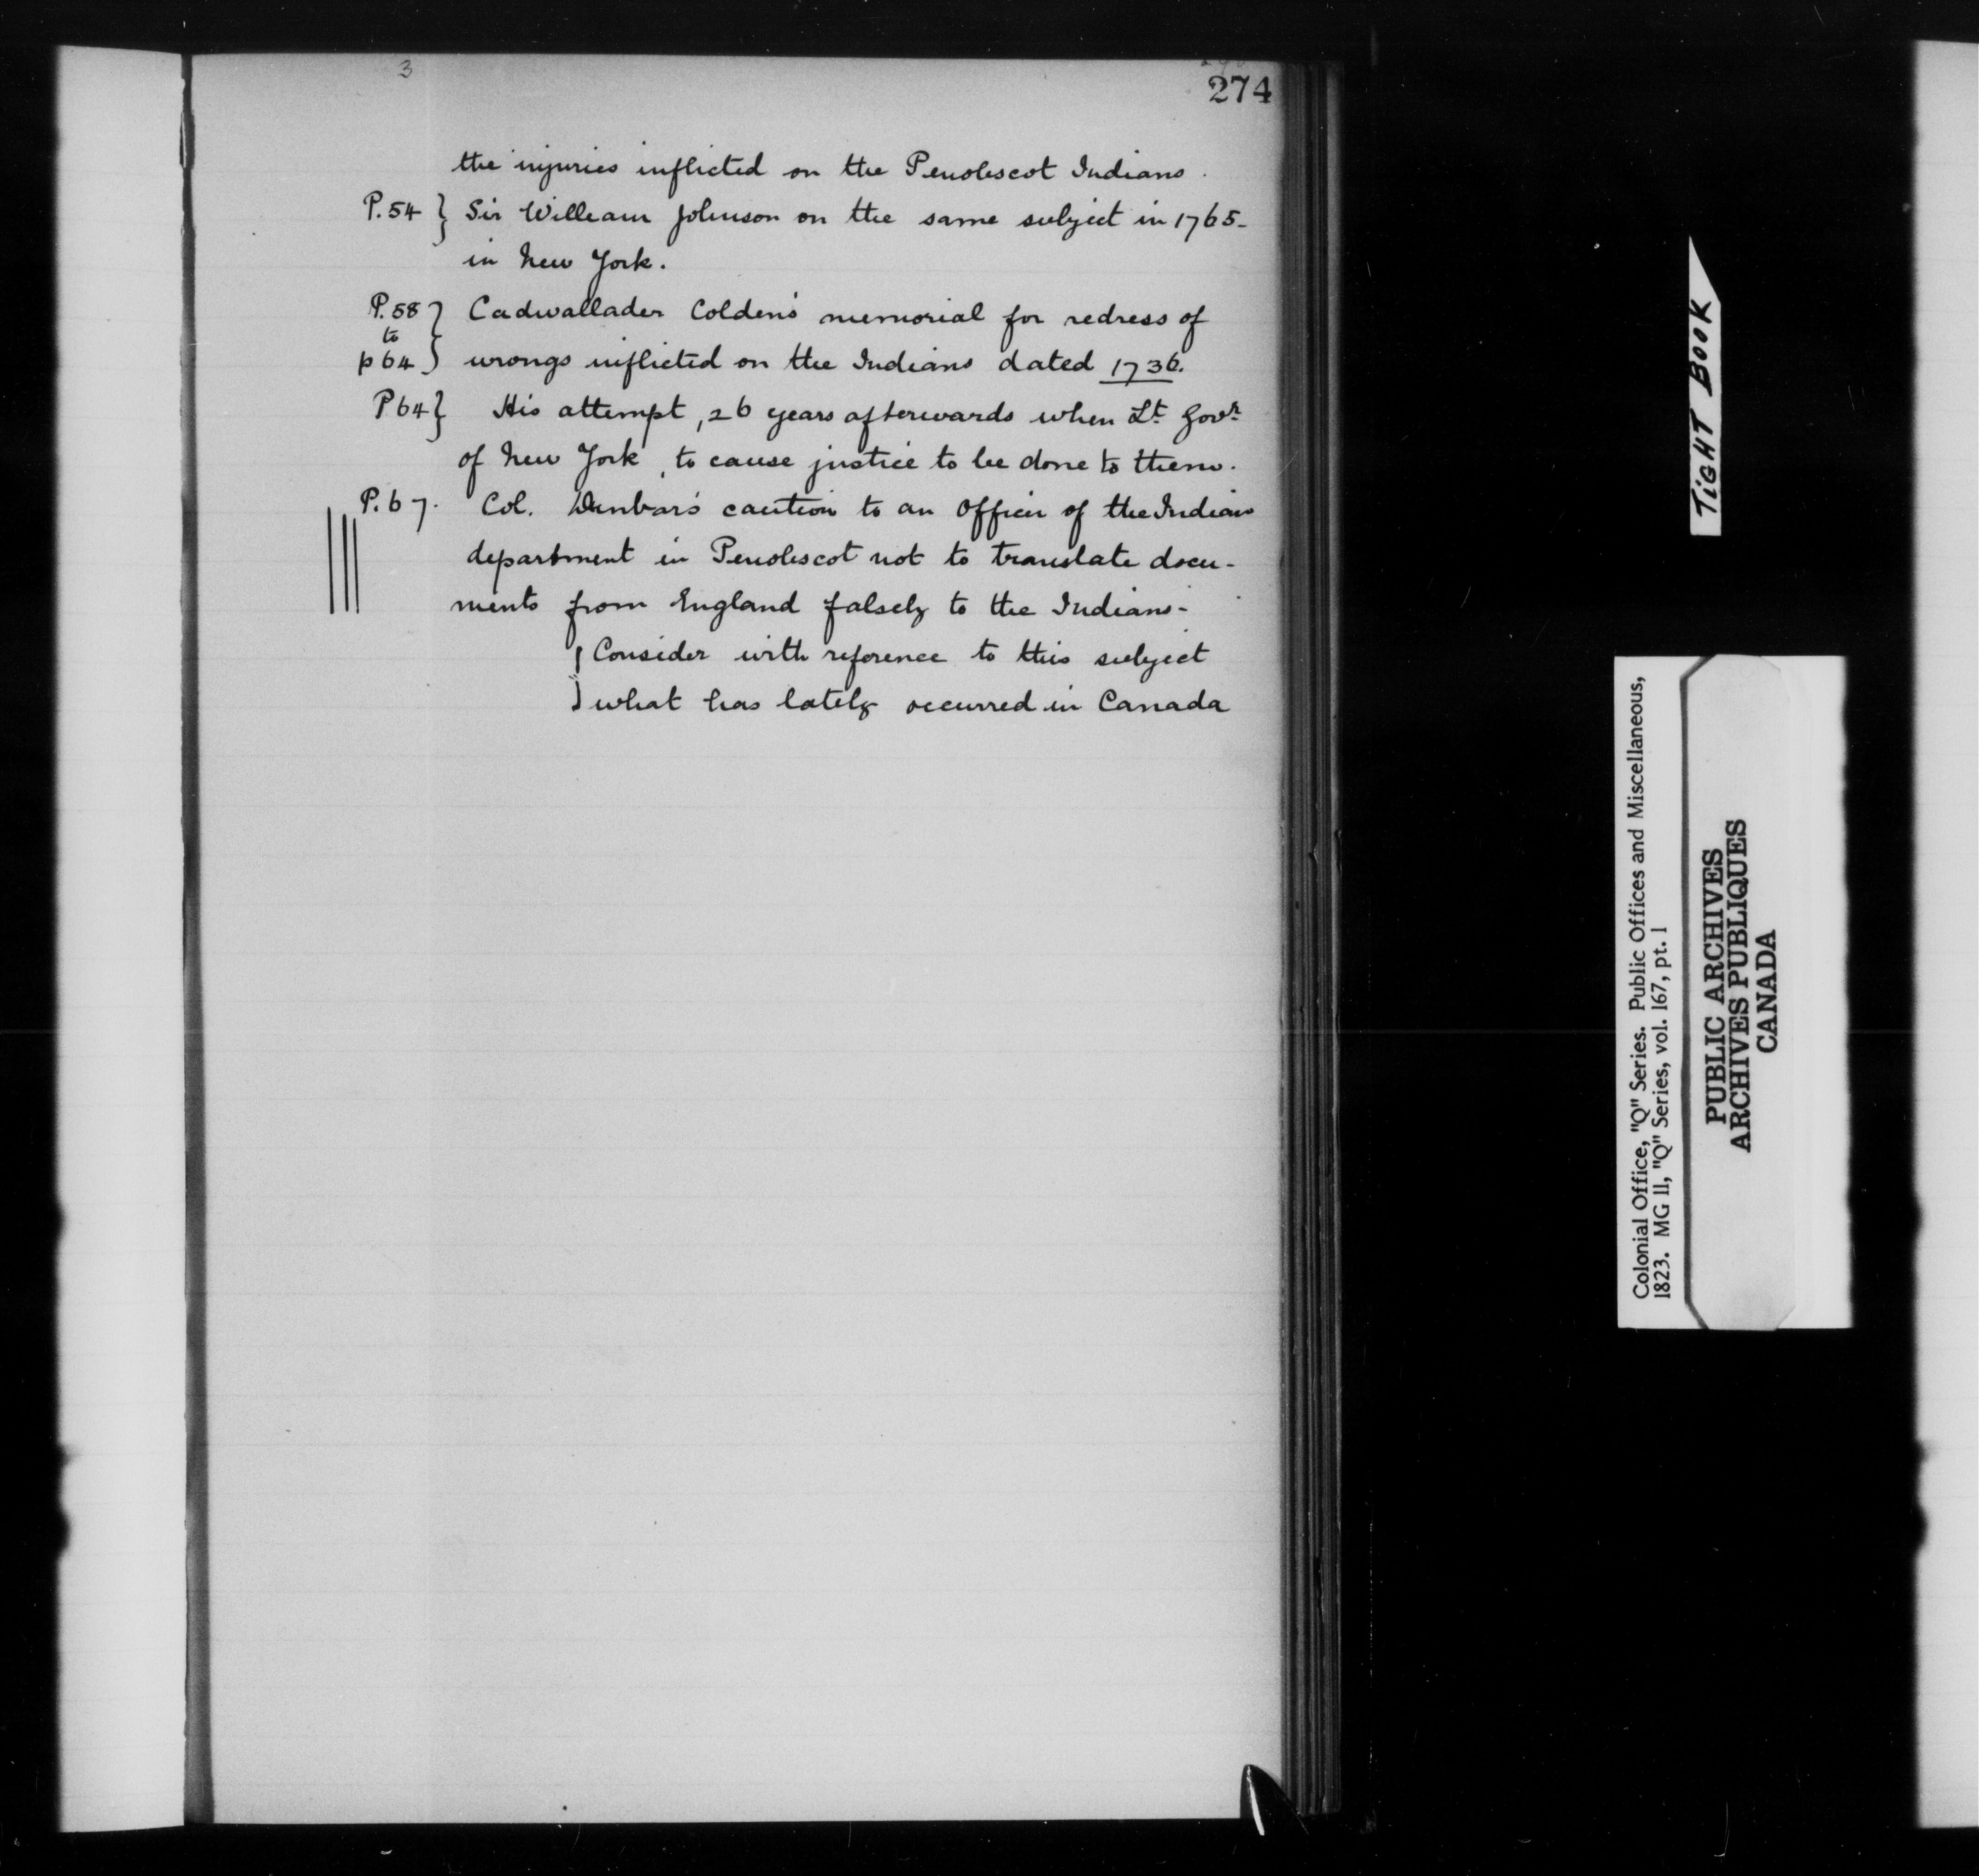 3
274
the injuries inflicted on the Penobscot Indians.
P.54 } Sir William Johnson on the same subject in 1765-
in New York.
P.58 } Cadwallader Colden's memorial for redress of
to
p 64 } wrongs inflicted on the Indians dated 1736.
P 64 } His attempt, 26 years afterwards when Lt. Govr.
of New York, to cause justice to be done to them.
P.67. Col. Dunbar's caution to an Officer of the Indian
department in Penobscot not to translate docu-
ments from England falsely to the Indians-
Consider with reference to this subject
what has lately occurred in Canada
TIGHT BOOK
Colonial Office, "Q" Series. Public Offices and Miscellaneous,
1823. MG 11, "Q" Series, vol. 167, pt. 1
PUBLIC ARCHIVES
ARCHIVES PUBLIQUES
CANADA